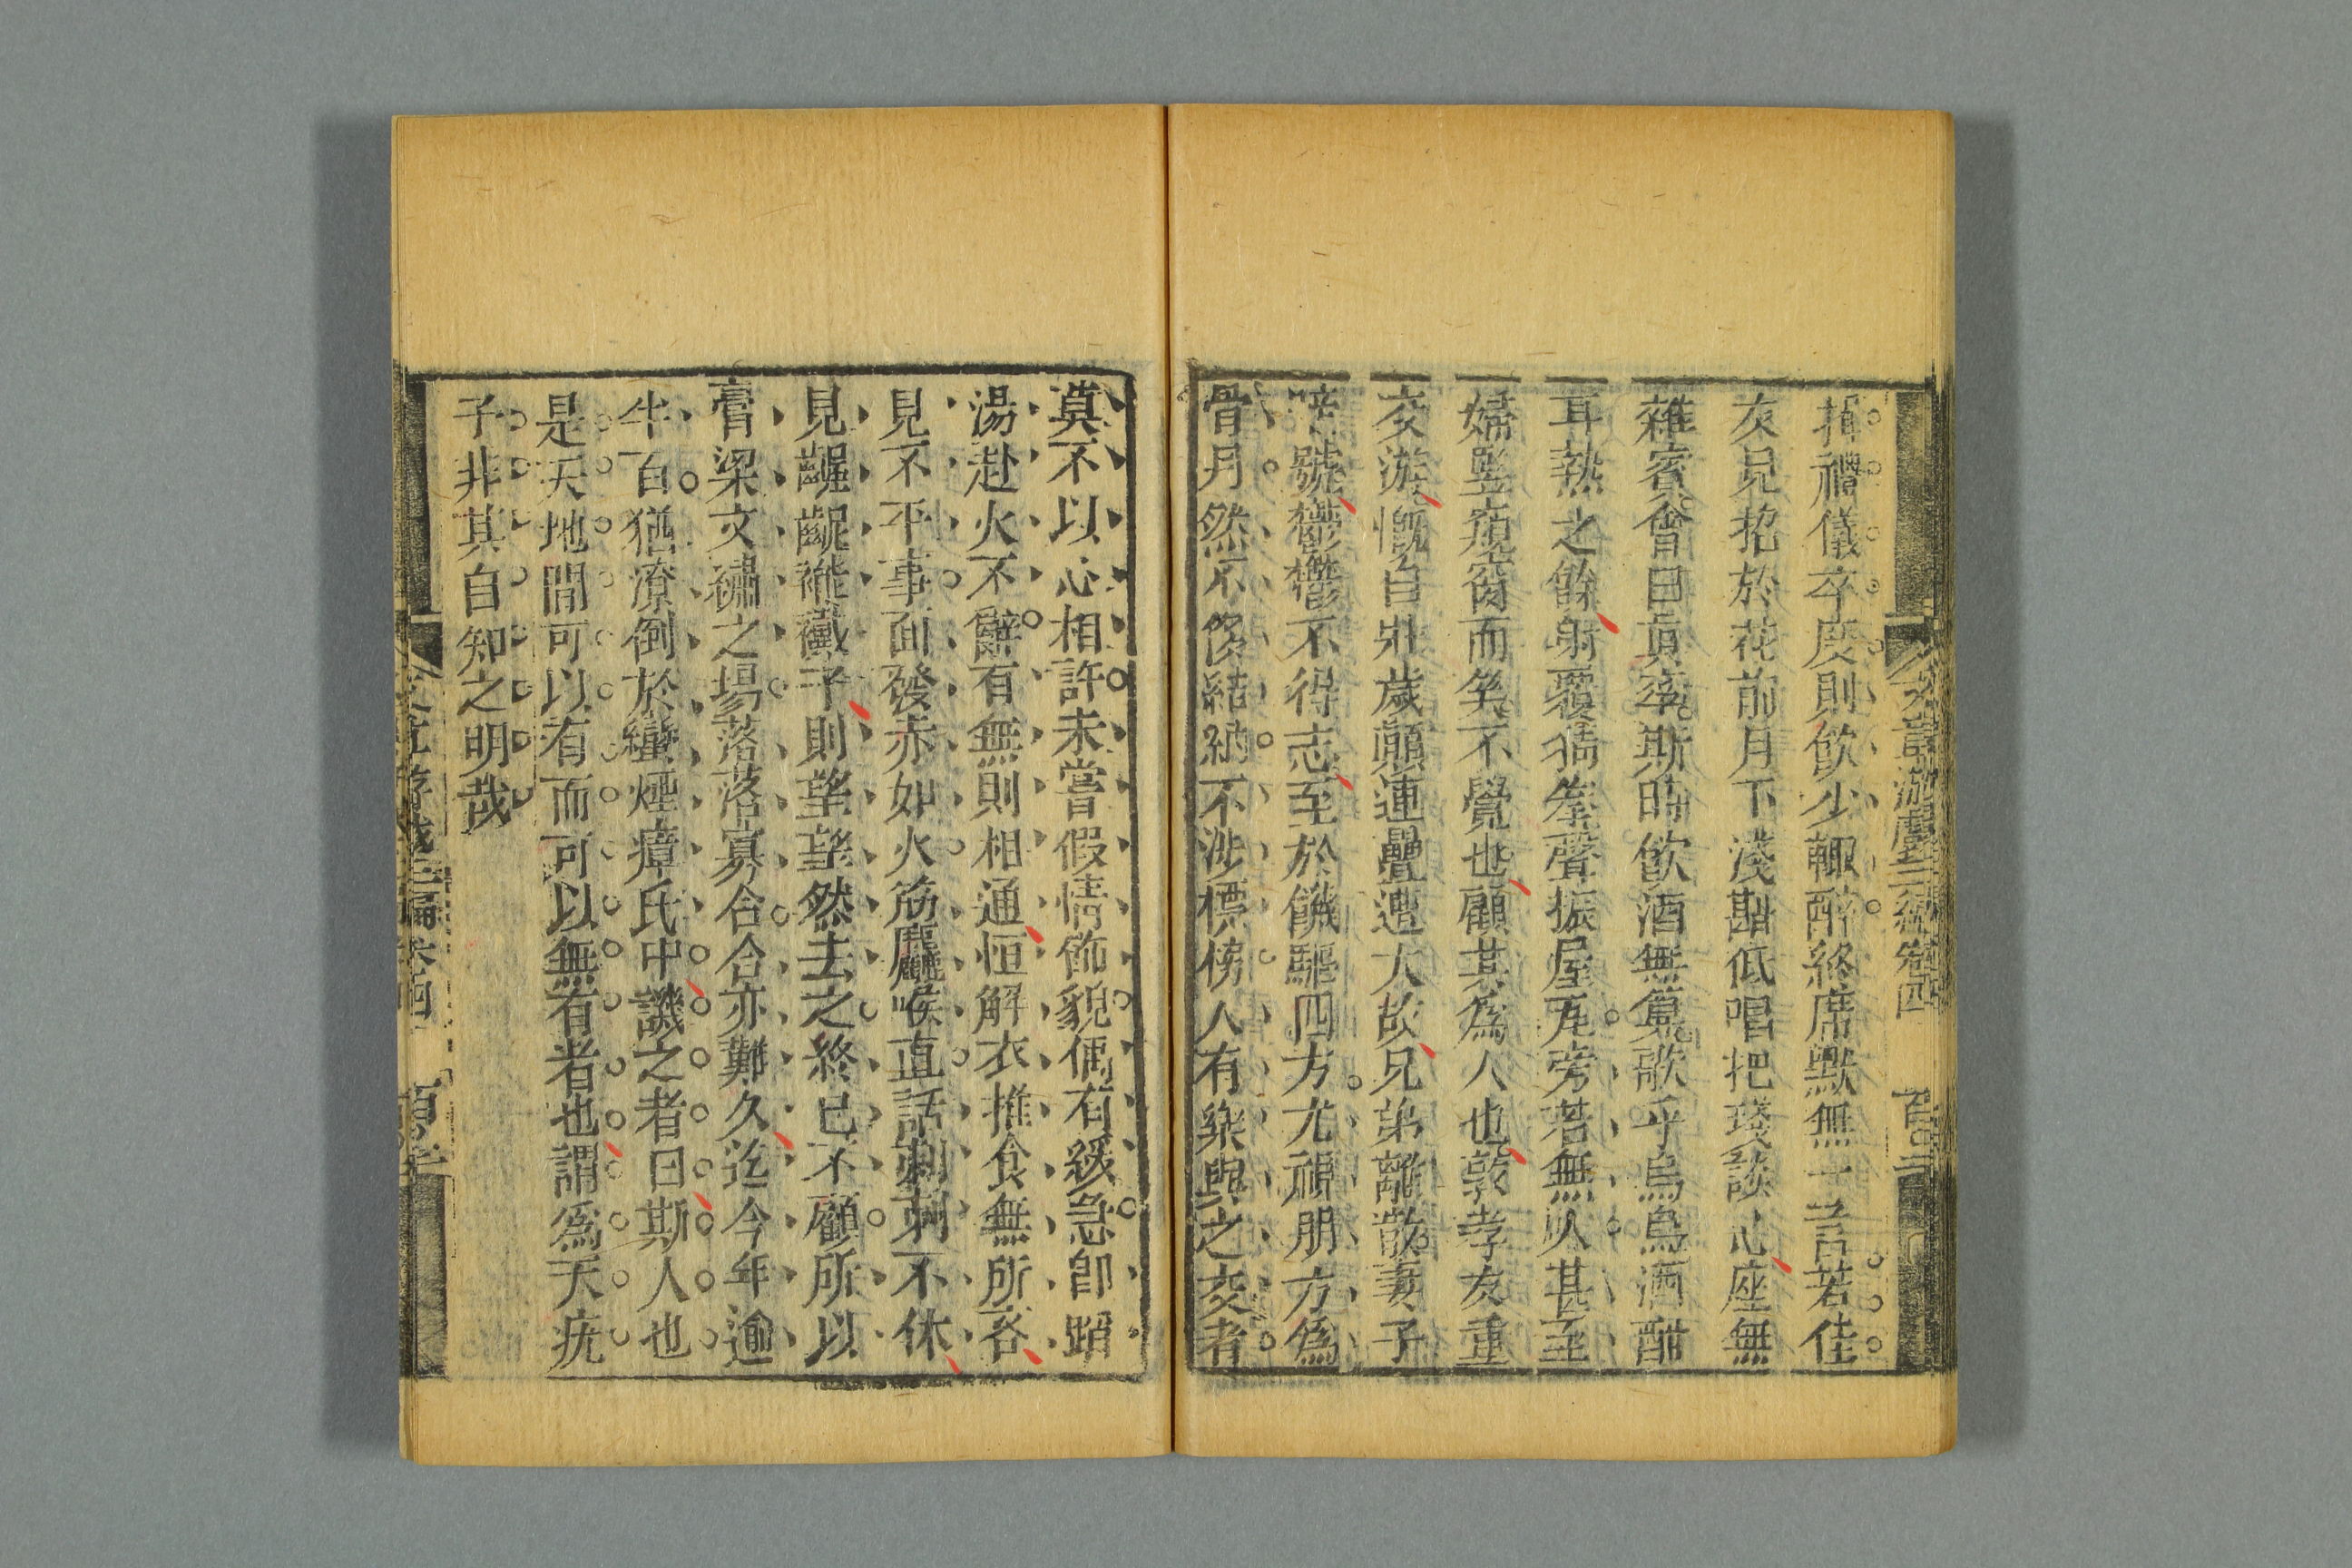 揖禮儀卒度則飲少輙醉終席默無一言若佳
友見招於花前月下淺斟低唱把琖談心座無
雜賓會曰眞率斯時飲酒無筭歌乎烏烏酒酣
耳熱之餘射覆猜拳聲振屋瓦旁若無人甚至
婦豎窺窗而笑不覺也顧其爲人也敦孝友重
交游慨自壯歲顛連疊遭大故兄弟離散妻子
啼號鬱鬱不得志至於饑驅四方尤視朋友爲
骨月然不僞結納不涉標榜人有樂與之交者
莫不以心相許未嘗假情飾貌偶有緩急卽蹈
湯赴火不辭有無則相通恒解衣推食無所吝
見不平事面發赤如火筋麤喉直話刺刺不休
見齷齪褦襶子則望望然去之終已不顧所以
膏梁文繡之場落落寡合合亦難久迄今年逾
半百猶潦倒於蠻煙瘴氏中譏之者曰斯人也
是天地間可以有而可以無有者也謂爲天疣
子非其自知之明哉